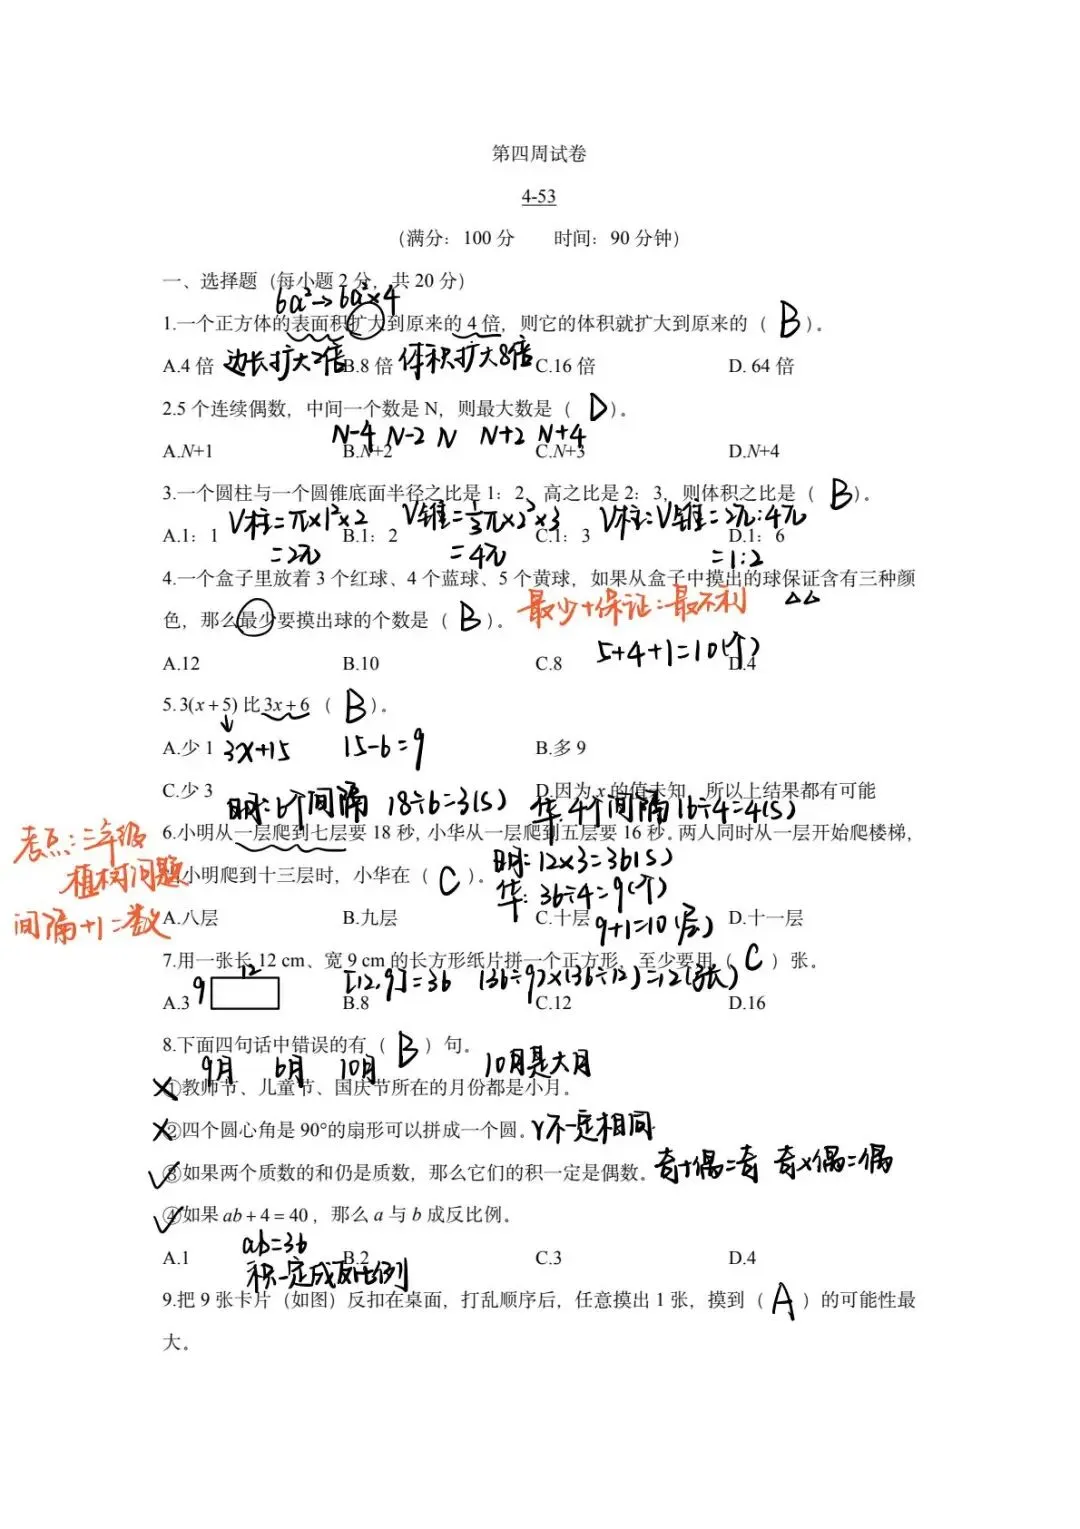 第四周试卷
4-53
（满分：100 分 时间：90 分钟）
一、选择题（每小题 2 分，共 20 分）
6a²→6a²×4
1.一个正方体的表面积扩大到原来的 4 倍，则它的体积就扩大到原来的（ B ）。
A.4 倍 边长扩大2倍 B.8 倍 体积扩大8倍 C.16 倍 D. 64 倍
2.5 个连续偶数，中间一个数是 N，则最大数是（ D ）。
N-4 N-2 N N+2 N+4
A.N+1 B.N+2 C.N+3 D.N+4
3.一个圆柱与一个圆锥底面半径之比是 1：2，高之比是 2：3，则体积之比是（ B ）。
V柱=π×1²×2 V锥=1/3π×2²×3 V柱:V锥=2π:4π
A.1：1 B.1：2 C.1：3 D.1：6
=2π =4π =1:2
4.一个盒子里放着 3 个红球、4 个蓝球、5 个黄球，如果从盒子中摸出的球保证含有三种颜
色，那么最少要摸出球的个数是（ B ）。 最少+保证:最不利
5+4+1=10(个)
A.12 B.10 C.8 D.4
5.3(x+5) 比 3x+6（ B ）。
A.少 1 3x+15 15-6=9 B.多 9
C.少 3 D.因为 x 的值未知，所以上结果都有可能
明:6个间隔 18÷6=3(s) 华:4个间隔 16÷4=4(s)
6.小明从一层爬到七层要 18 秒，小华从一层爬到五层要 16 秒。两人同时从一层开始爬楼梯，
考点:三年级
植树问题
间隔+1=数
明:12×3=36(s)
小明爬到十三层时，小华在（ C ）。
华:36÷4=9(个)
A.八层 B.九层 C.十层 D.十一层
9+1=10(层)
7.用一张长 12 cm、宽 9 cm 的长方形纸片拼一个正方形，至少要用（ C ）张。
12
9
[12,9]=36 (36÷9)×(36÷12)=12(张)
A.3 B.8 C.12 D.16
8.下面四句话中错误的有（ B ）句。
9月 6月 10月 10月是大月
①教师节、儿童节、国庆节所在的月份都是小月。
②四个圆心角是 90°的扇形可以拼成一个圆。r不一定相同
③如果两个质数的和仍是质数，那么它们的积一定是偶数。奇+偶=奇 奇×偶=偶
④如果 ab+4=40，那么 a 与 b 成反比例。
ab=36
A.1 B.2 C.3 D.4
积一定成反比例
9.把 9 张卡片（如图）反扣在桌面，打乱顺序后，任意摸出 1 张，摸到（ A ）的可能性最
大。